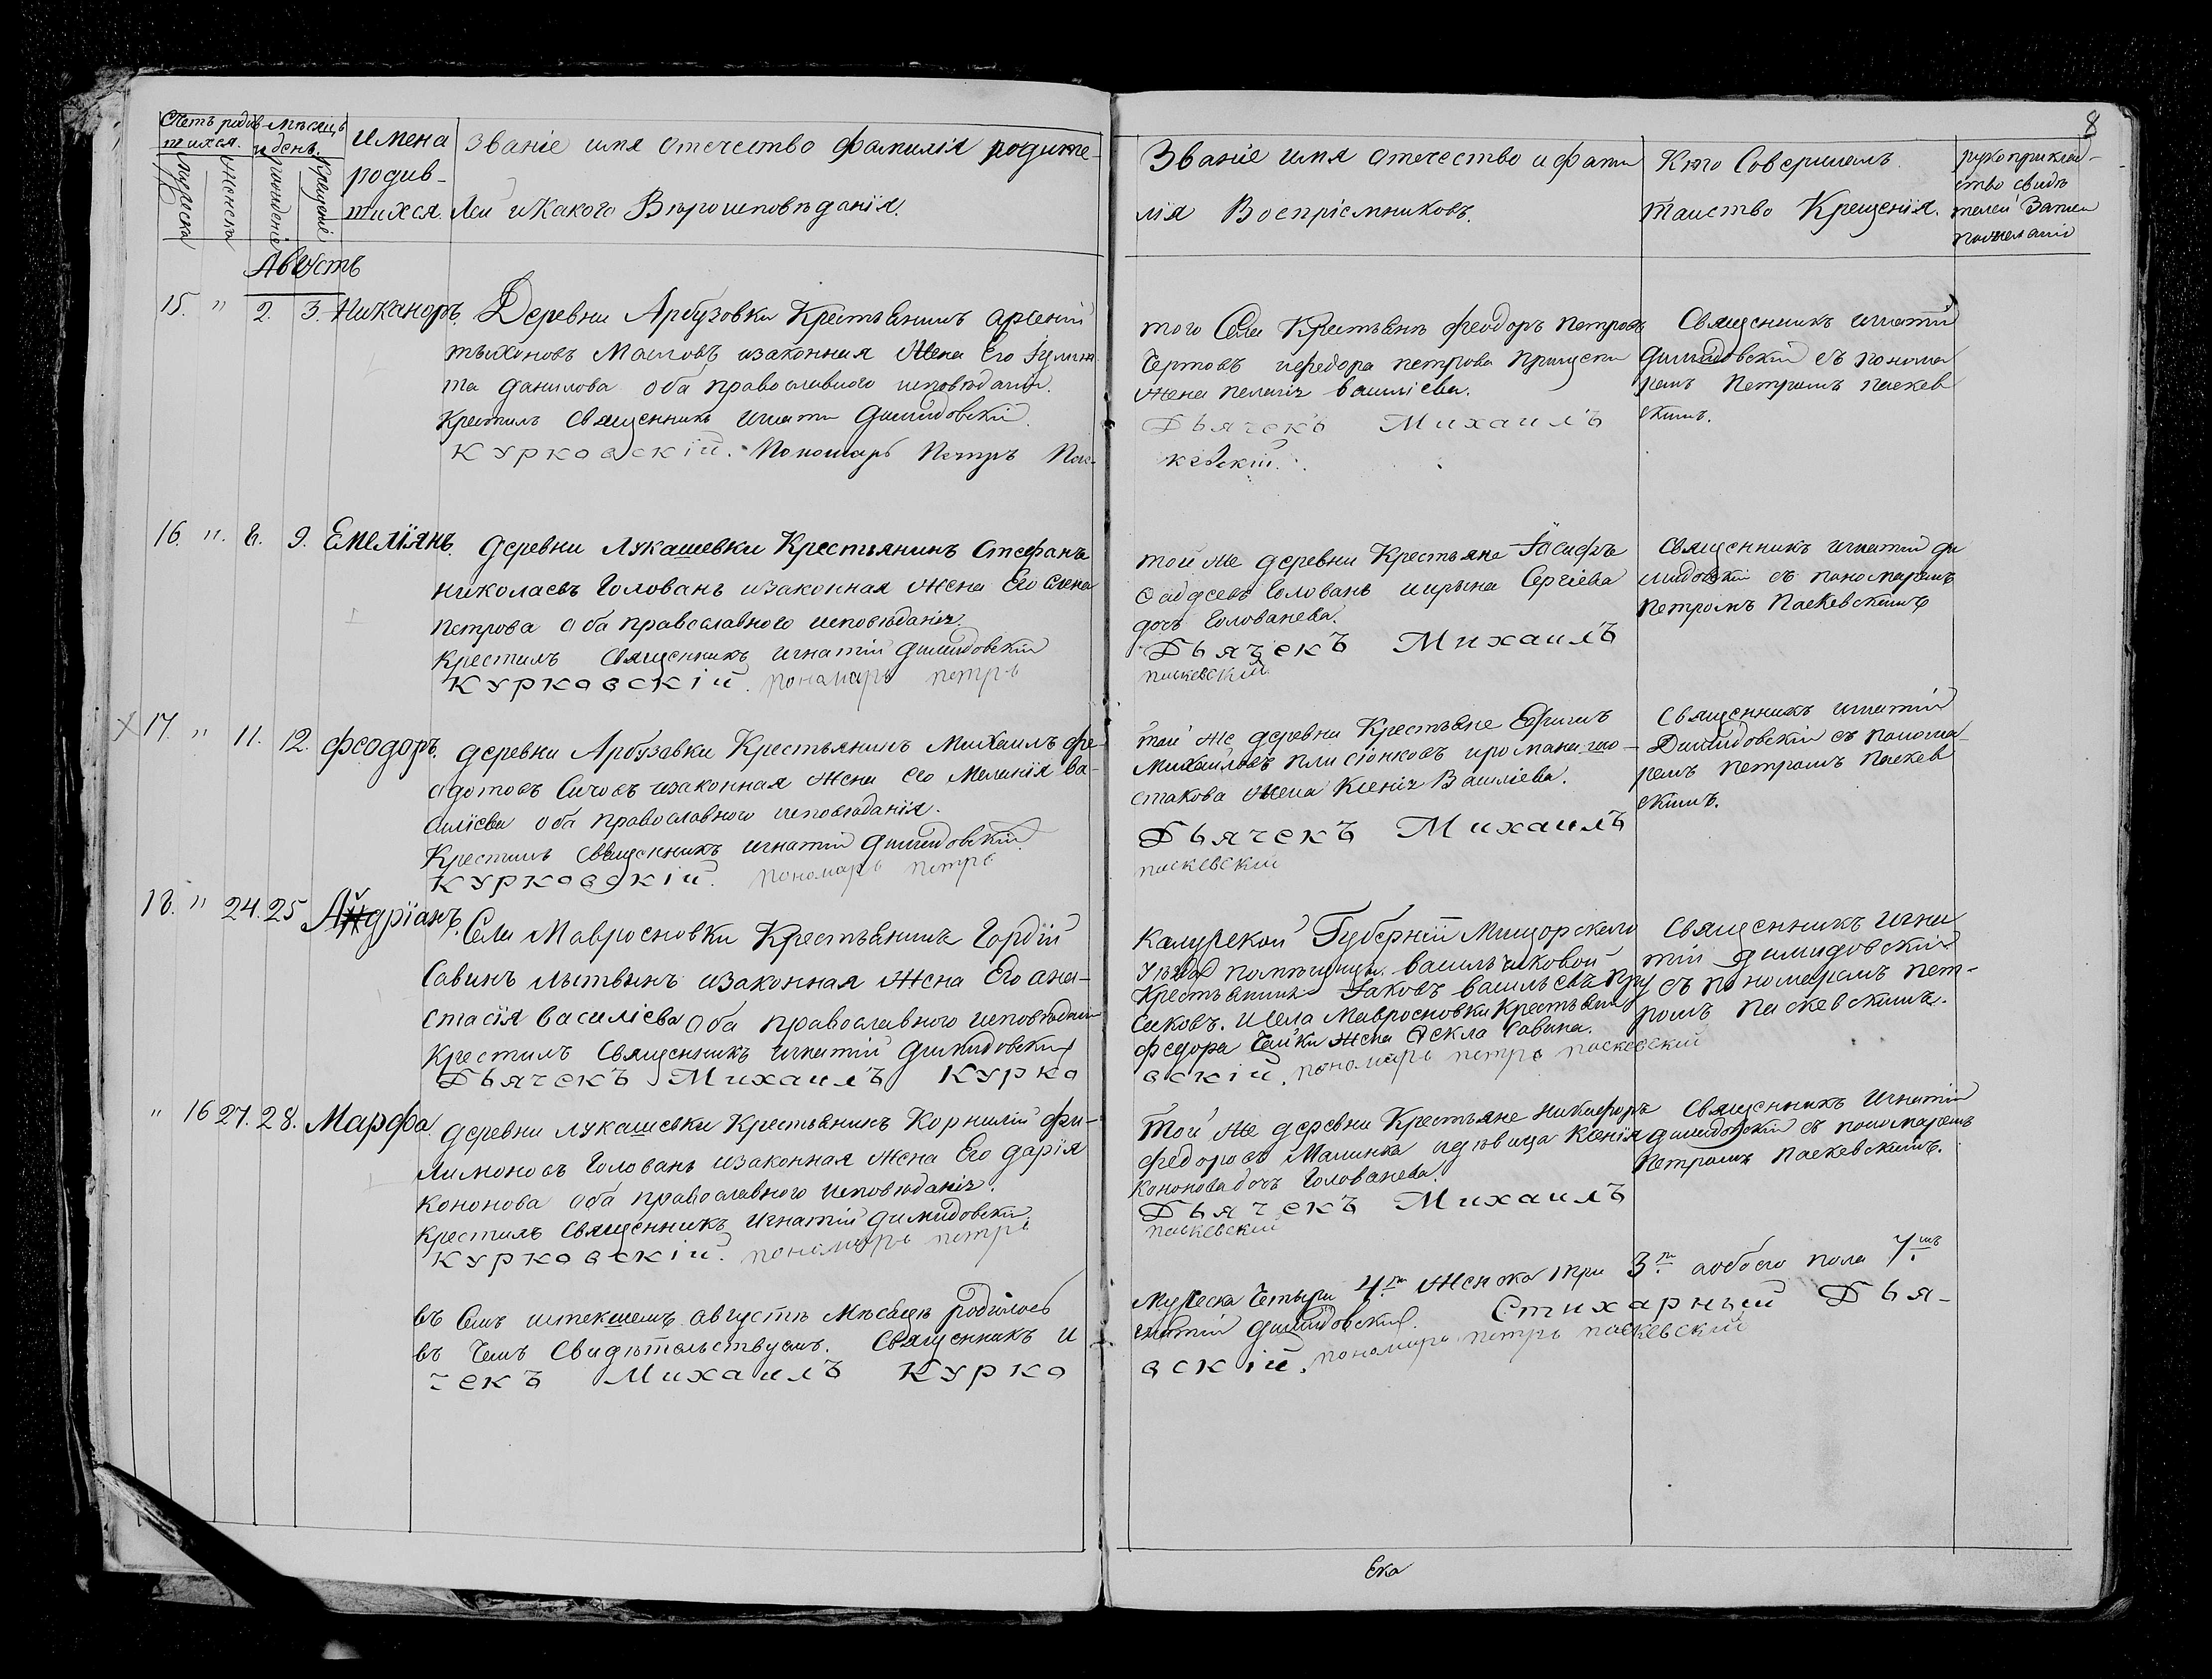 8
Счетъ родив-
шихся.
Мужеска
Женска
Мѣсяцъ
и день.
рожденія
крещенія
имена
родив-
шихся.
Званіе имя отечество фамилія родите-
лей и какого Вѣроисповѣданія.
Званіе имя отечество и фами
лія Воспріемниковъ.
Кто Совершалъ
таинство Крещенія.
рукоприклад-
ство свидѣ
телей Записи
Августъ
15. " 2. 3. Никаноръ.
Деревни Арбузовки Крестьянинъ арсеній
тыхоновъ Масловъ изаконная Жена Его
та данилова оба православного исповѣданія.
Крестилъ Священникъ Игнатій Димидовскій.
Курковскій. Пономарь Петръ Пас-
того Села Крестьянъ феодоръ Петровъ
Чертовъ ифедора петрова
жена пелагія василіева.
Дьячекъ Михаилъ
кевскій.
Священникъ игнатій
Димидовскій съ понома
ремъ Петромъ паскев
скимъ.
16. ". 8. 9. Емеліянъ.
деревни Лукашевки Крестьянинъ Стефанъ
николаевъ Голованъ изаконная Жена Его
Петрова оба православного исповѣданія.
Крестилъ Священникъ игнатій димидовскій
Курковскій. пономарь петръ
той же деревни Крестьяне Іосифъ
Голованъ иирына Сергіева
дочь Голованева.
Дьячекъ Михаилъ
паскевскій
Священникъ игнатій ди
мидовскій съ пономаремъ
Петромъ Паскевскимъ
17. " 11. 12. феодоръ.
деревни Арбузовки Крестьянинъ Михаилъ фе-
одотовъ Сичовъ изаконная жена его Меланія Ва-
силіева оба православного исповѣданія.
Крестилъ Священникъ игнатій димидовскій
Курковскій. пономарь петръ
той же деревни Крестьяне Ефимъ
Михайловъ иромана
стакова жена Ксенія Василіева.
Дьячекъ Михаилъ
паскевскій
Священникъ игнатій
Димидовскій съ понома
ремъ петромъ Паскев
скимъ.
18. " 24. 25 Андріанъ.
Села Мавросновки Крестьянинъ Гордій
Савинъ лытвынъ изаконная Жена Его ана-
стасія василіева оба православного исповѣданія
Крестилъ Священникъ игнатій димидовскій
Дьячекъ Михаилъ Курко
Калужской Губерніи Мищорскаго
Уѣзда помѣщицы Васильчиковой
Крестьянинъ Іаковъ васильевъ Пру
саковъ. Исела Мавросновки Крестьянина
федора Чайки жена Фекла Савина.
вскій. пономарь петръ паскевскій
Священникъ Игна
тій димидовскій
съ пономаремъ пет-
ромъ паскевскимъ.
" 16 27. 28. Марфа.
деревни лукашевки Крестьянинъ Корнилій фи-
лимоновъ Голованъ изаконная жена Его дарія
Кононова оба православного исповѣданія.
Крестилъ Священникъ Игнатій димидовскій.
Курковскій. пономарь петръ
Той же деревни Крестьяне никифоръ
федоровъ Малинка идѣвица Ксенія
Кононова дочь Голованева.
Дьячекъ Михаилъ
паскевскій
Священникъ Игнатій
димидовскій съ пономаремъ
Петромъ Паскевскимъ.
въ Семъ истекшемъ августѣ Мѣсяцѣ родилось
въ Чемъ Свидѣтельствуемъ. Священникъ И
чекъ Михаилъ Курко
Мужеска Четыри 4. Женска три 3. аобоего пола 7.
гнатій димидовскій. Стихарный Дья-
вскій. пономарь петръ паскевскій
Ека